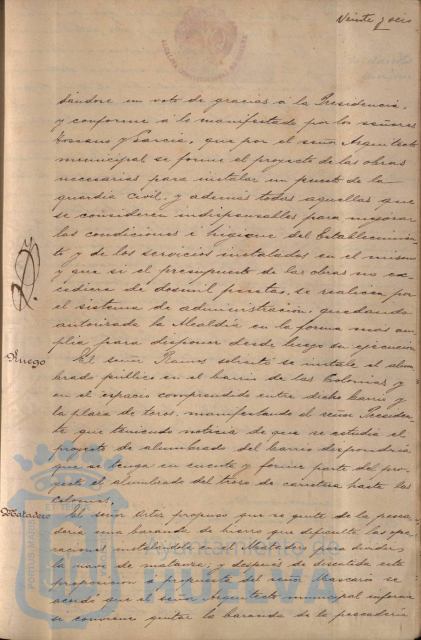 Veinte y seis
dándose un voto de gracias á la Presidencia,
y conforme á lo manifestado por los señores
y García, que por el señor Arquitecto
municipal se forme el proyecto de las obras
necesarias para instalar un puesto de la
guardia civil, y además todas aquellas que
se consideren indispensables para mejorar
las condiciones é higiene del Establecimien
to y de los servicios instalados en el mismo
y que si el presupuesto de las obras no ex
cediere de dosmil pesetas, se realicen por
el sistema de administración, quedando
autorizada la Alcaldía en la forma más am
plia para disponer desde luego su ejecución
Ruego El señor Ramos solicitó se instale el alum
brado público en el barrio de las Colonias y
en el espacio comprendido entre dicho barrio y
la plaza de toros, manifestando el señor Presiden
te que teniendo noticia de que se estudia el
proyecto de alumbrado del barrio dispondría
que se tenga en cuenta y forme parte del pro
yecto el alumbrado del trozo de carretera hasta las
Colonias.
Matadero El señor propuso que se quite de la pesca
dería una baranda de hierro que dificulta las ope
raciones instalándola en el Matadero para dividir
la nave de matanza; y después de discutida esta
proposición á propuesta del señor se
acordó que el señor Arquitecto municipal informe
si conviene quitar la baranda de la pescadería
Ayuntamiento de
HUELVA